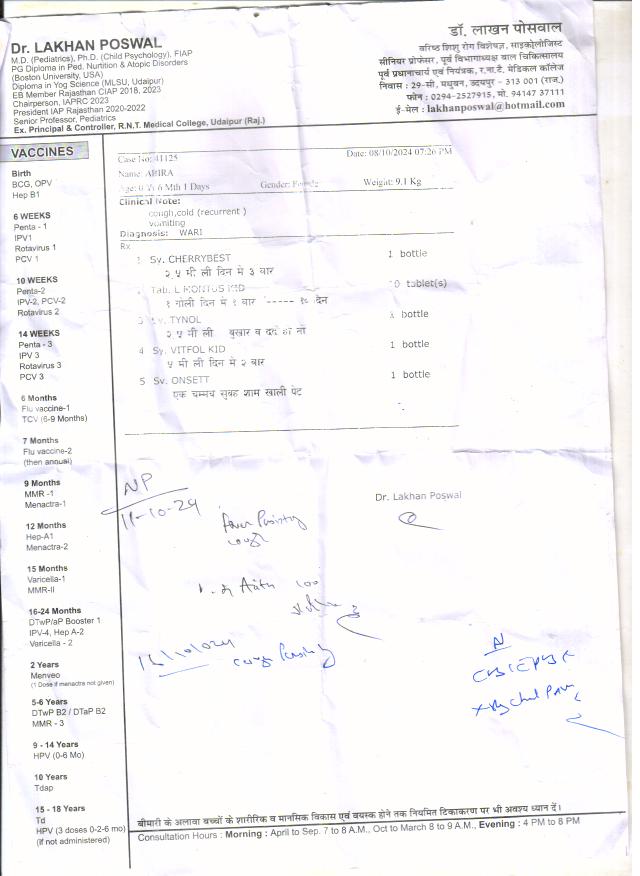 Dr. LAKHAN POSWAL
M.D. (Pediatrics), Ph.D. (Child Psychology), FIAP
PG Diploma in Ped. Nurtition & Atopic Disorders
(Boston University, USA)
Diploma in Yog Science (MLSU, Udaipur)
EB Member Rajasthan CIAP 2018, 2023
Chairperson, IAPRC 2023
President IAP Rajasthan 2020-2022
Senior Professor, Pediatrics
Ex. Principal & Controller, R.N.T. Medical College, Udaipur (Raj.)
डॉ. लाखन पोसवाल
वरिष्ठ शिशु रोग विशेषज्ञ, साइकोलोजिस्ट
सीनियर प्रोफेसर, पूर्व विभागाध्यक्ष बाल चिकित्सालय
पूर्व प्रधानाचार्य एवं नियंत्रक, र.ना.टै. मेडिकल कॉलेज
निवास : 29-सी, मधुबन, उदयपुर - 313 001 (राज.)
फोन : 0294-2527915, मो. 94147 37111
ई-मेल : lakhanposwal@hotmail.com
VACCINES
Birth
BCG, OPV
Hep B1
6 WEEKS
Penta - 1
IPV1
Rotavirus 1
PCV 1
10 WEEKS
Penta-2
IPV-2, PCV-2
Rotavirus 2
14 WEEKS
Penta - 3
IPV 3
Rotavirus 3
PCV 3
6 Months
Flu vaccine-1
TCV (6-9 Months)
7 Months
Flu vaccine-2
(then annual)
9 Months
MMR -1
Menactra-1
12 Months
Hep-A1
Menactra-2
15 Months
Varicella-1
MMR-II
16-24 Months
DTwP/aP Booster 1
IPV-4, Hep A-2
Varicella - 2
2 Years
Menveo
(1 Dose if menactra not given)
5-6 Years
DTwP B2 / DTaP B2
MMR - 3
9 - 14 Years
HPV (0-6 Mo)
10 Years
Tdap
15 - 18 Years
Td
HPV (3 doses 0-2-6 mo)
(if not administered)
Case No: 41125 Date: 08/10/2024 07:26 PM
Name: ABIRA
Age: 0 Yr 6 Mth 1 Days Gender: Female Weight: 9.1 Kg
Clinical Note:
cough,cold (recurrent )
vomiting
Diagnosis: WARI
Rx
1 Sy. CHERRYBEST 1 bottle
२.५ मी ली दिन मे ३ बार
2 Tab. L MONTUS KID tablet(s)
१ गोली दिन मे १ बार ----- १० दिन
3 Sy. TYNOL bottle
२.५ मी ली बुखार व दर्द हो तो
4 Sy. VITFOL KID 1 bottle
५ मी ली दिन मे २ बार
5 Sy. ONSETT 1 bottle
एक चम्मच सुबह शाम खाली पेट
Dr. Lakhan Poswal
NP
11-10-24
cough
100
16/10/2024
X-Ray Chest
बीमारी के अलावा बच्चों के शारीरिक व मानसिक विकास एवं वयस्क होने तक नियमित टिकाकरण पर भी अवश्य ध्यान दें।
Consultation Hours : Morning : April to Sep. 7 to 8 A.M., Oct to March 8 to 9 A.M., Evening : 4 PM to 8 PM